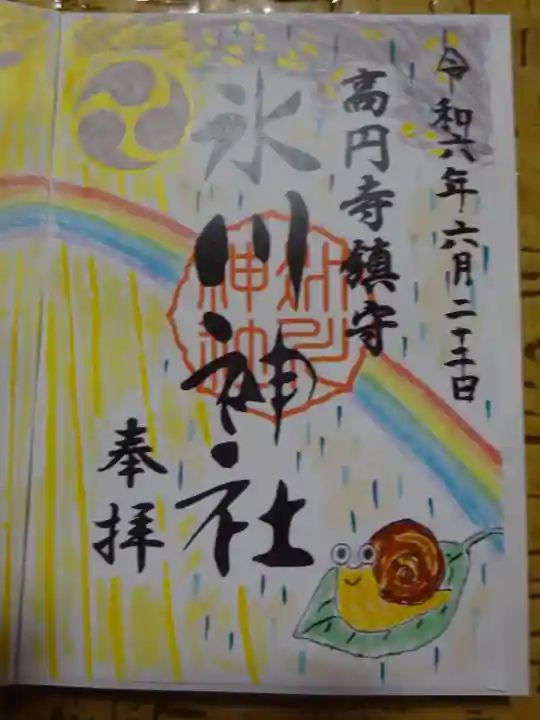 令和六年六月二十三日
高円寺鎮守
氷川神社
奉拝